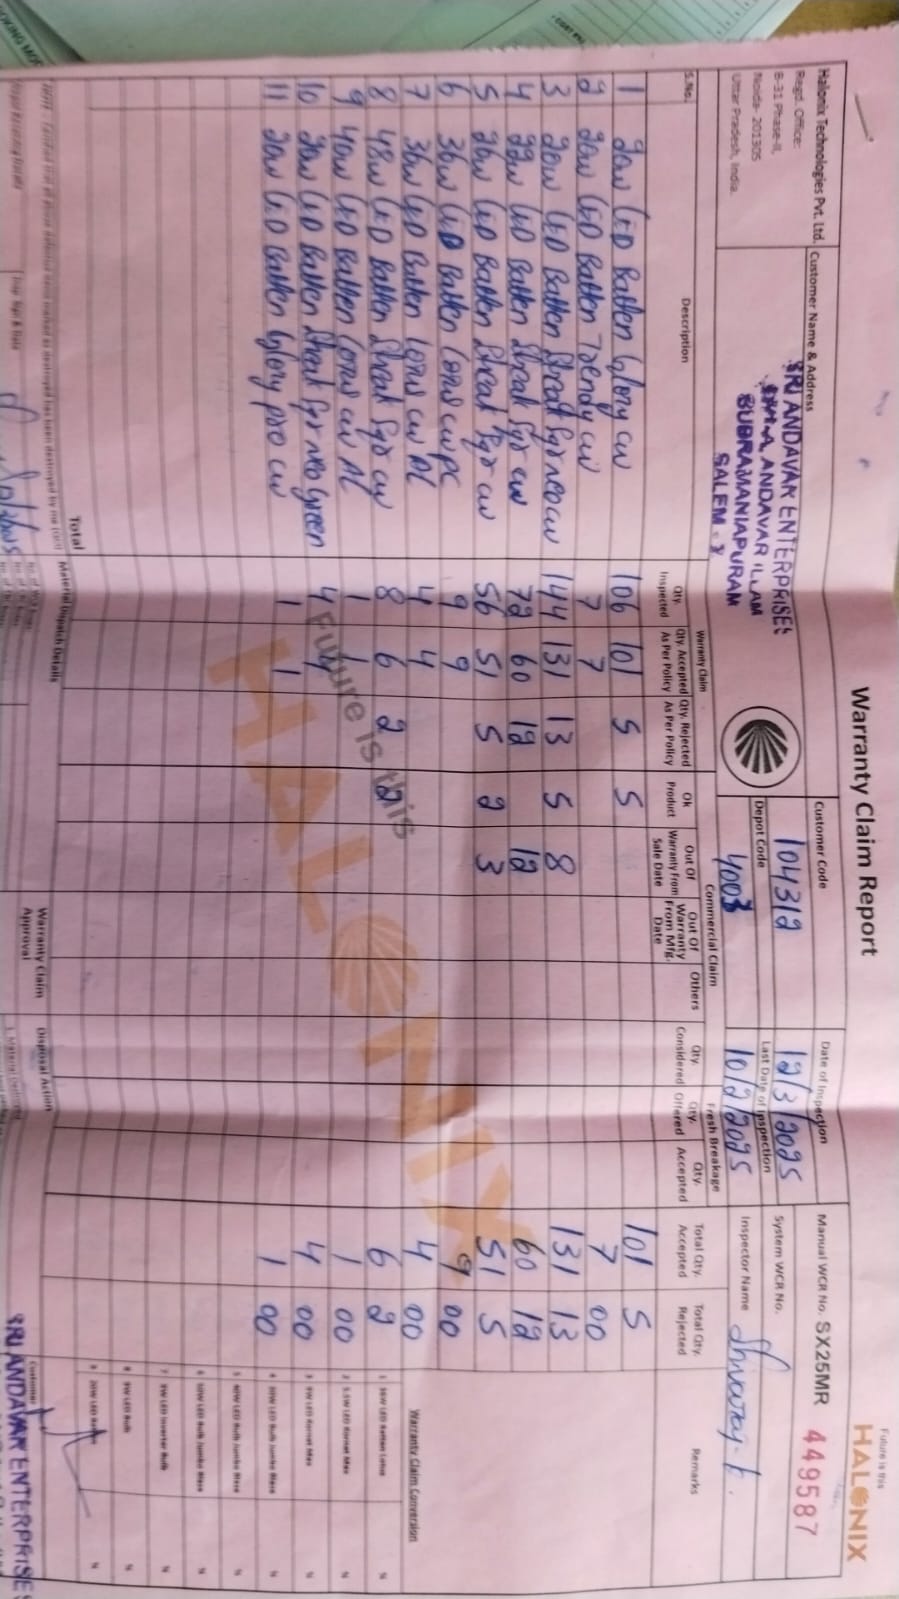 Warranty Claim Report
Future is this
HALONIX
Halonix Technologies Pvt. Ltd.
Regd. Office:
B-31 Phase-II,
Noida- 201305
Uttar Pradesh, India.
Customer Name & Address
SRI ANDAVAR ENTERPRISES
ANDAVAR ILLAM
SUBRAMANIAPURAM
SALEM -
Customer Code
104312
Depot Code
4003
Date of Inspection
12/3/2025
Last Date of Inspection
10/2/2025
Manual WCR No. SX25MR 449587
System WCR No.
Inspector Name
Warranty Claim Commercial Claim Fresh Breakage
S.No. Description Qty. Inspected Qty. Accepted As Per Policy Qty. Rejected As Per Policy Ok Product Out Of Warranty From Sale Date Out Of Warranty From Mfg. Date Others Qty. Considered Qty. Offered Qty. Accepted Total Qty. Accepted Total Qty. Rejected Remarks
1 20W LED Batten Glory cw 106 101 5 5 101 5
2 20W LED Batten Trendy cw 7 7 7 00
3 20W LED Batten Streak Sqr neo cw 144 131 13 5 8 131 13
4 22W LED Batten Streak Sqr cw 72 60 12 12 60 12
5 26W LED Batten Streak Sqr cw 56 51 5 2 3 51 5
6 36W LED Batten cw PC 9 9 9 00
7 36W LED Batten cw AL 4 4 4 00
8 48W LED Batten Streak Sqr cw 8 6 2 2 6 2
9 40W LED Batten cw AL 1 1 1 00
10 20W LED Batten Streak Sqr neo Green 4 4 4 00
11 20W LED Batten Glory pro cw 1 1 1 00
Future is this
HALONIX
Warranty Claim Conversion
1 36W LED Batten Lotus
5 40W LED Bulb Jumbo
6 50W LED Bulb Jumbo
7 9W LED Inverter Bulb
8 9W LED Bulb
9 20W LED Batten
Total
Material Dispatch Details
Warranty Claim Approval
Disposal Action
Customer
SRI ANDAVAR ENTERPRISES